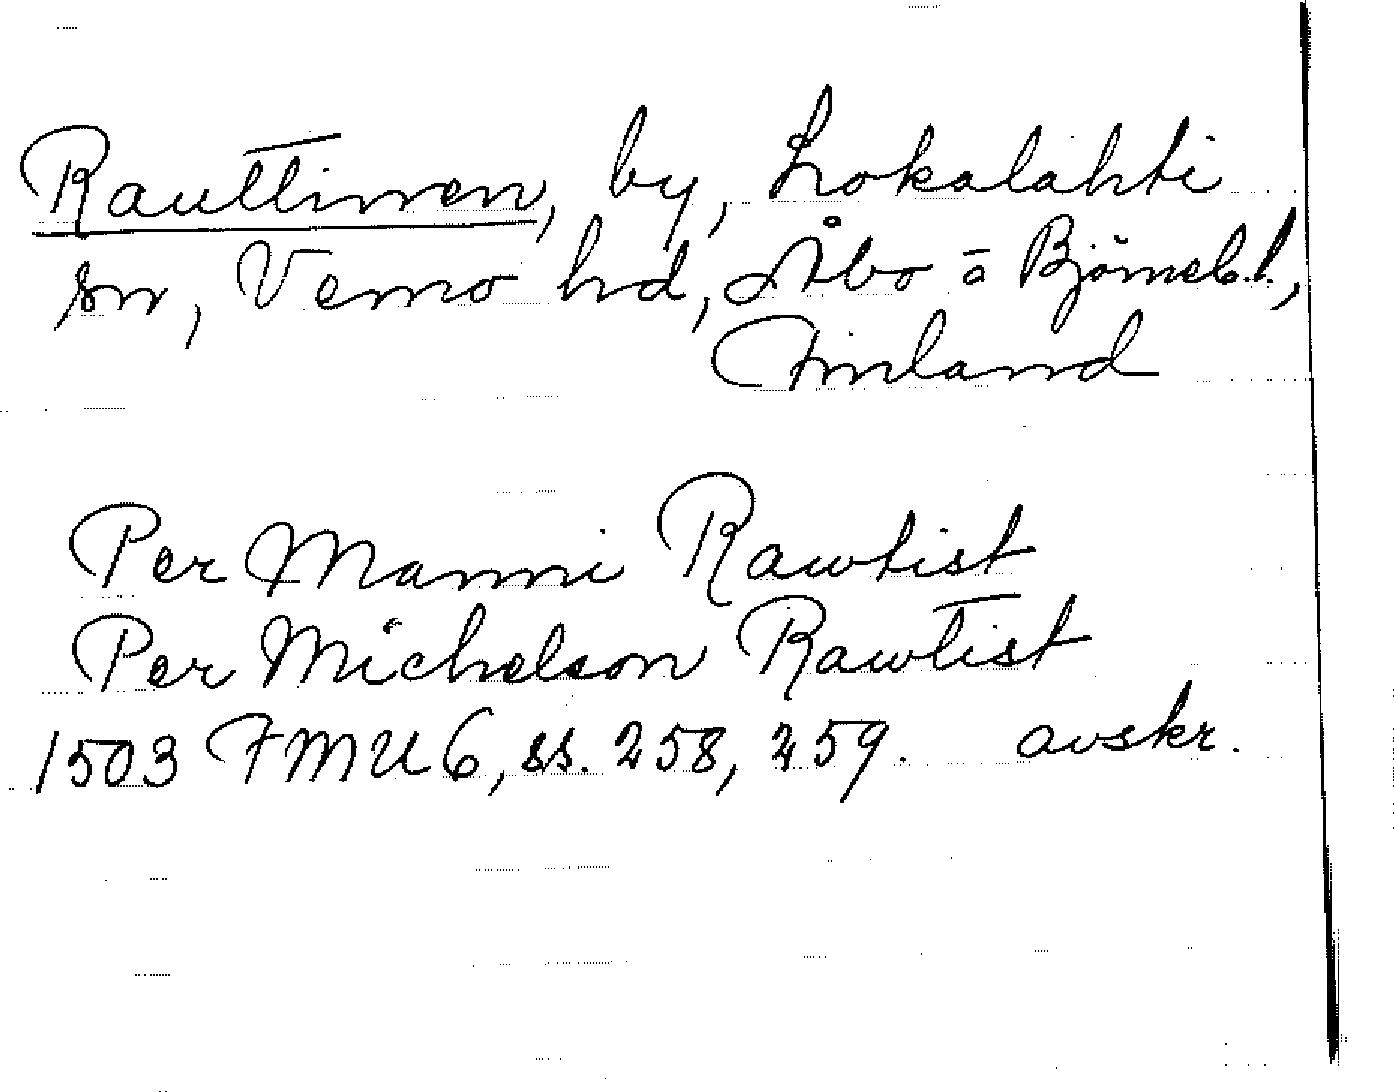 Rauttinen, by, Lokalahti
sn, Vemo hd, Åbo o Björneb.l.,
Finland
Per Manni Rawtist
Per Michelson Rawtist
1503 FMU 6, ss. 258, 259. avskr.